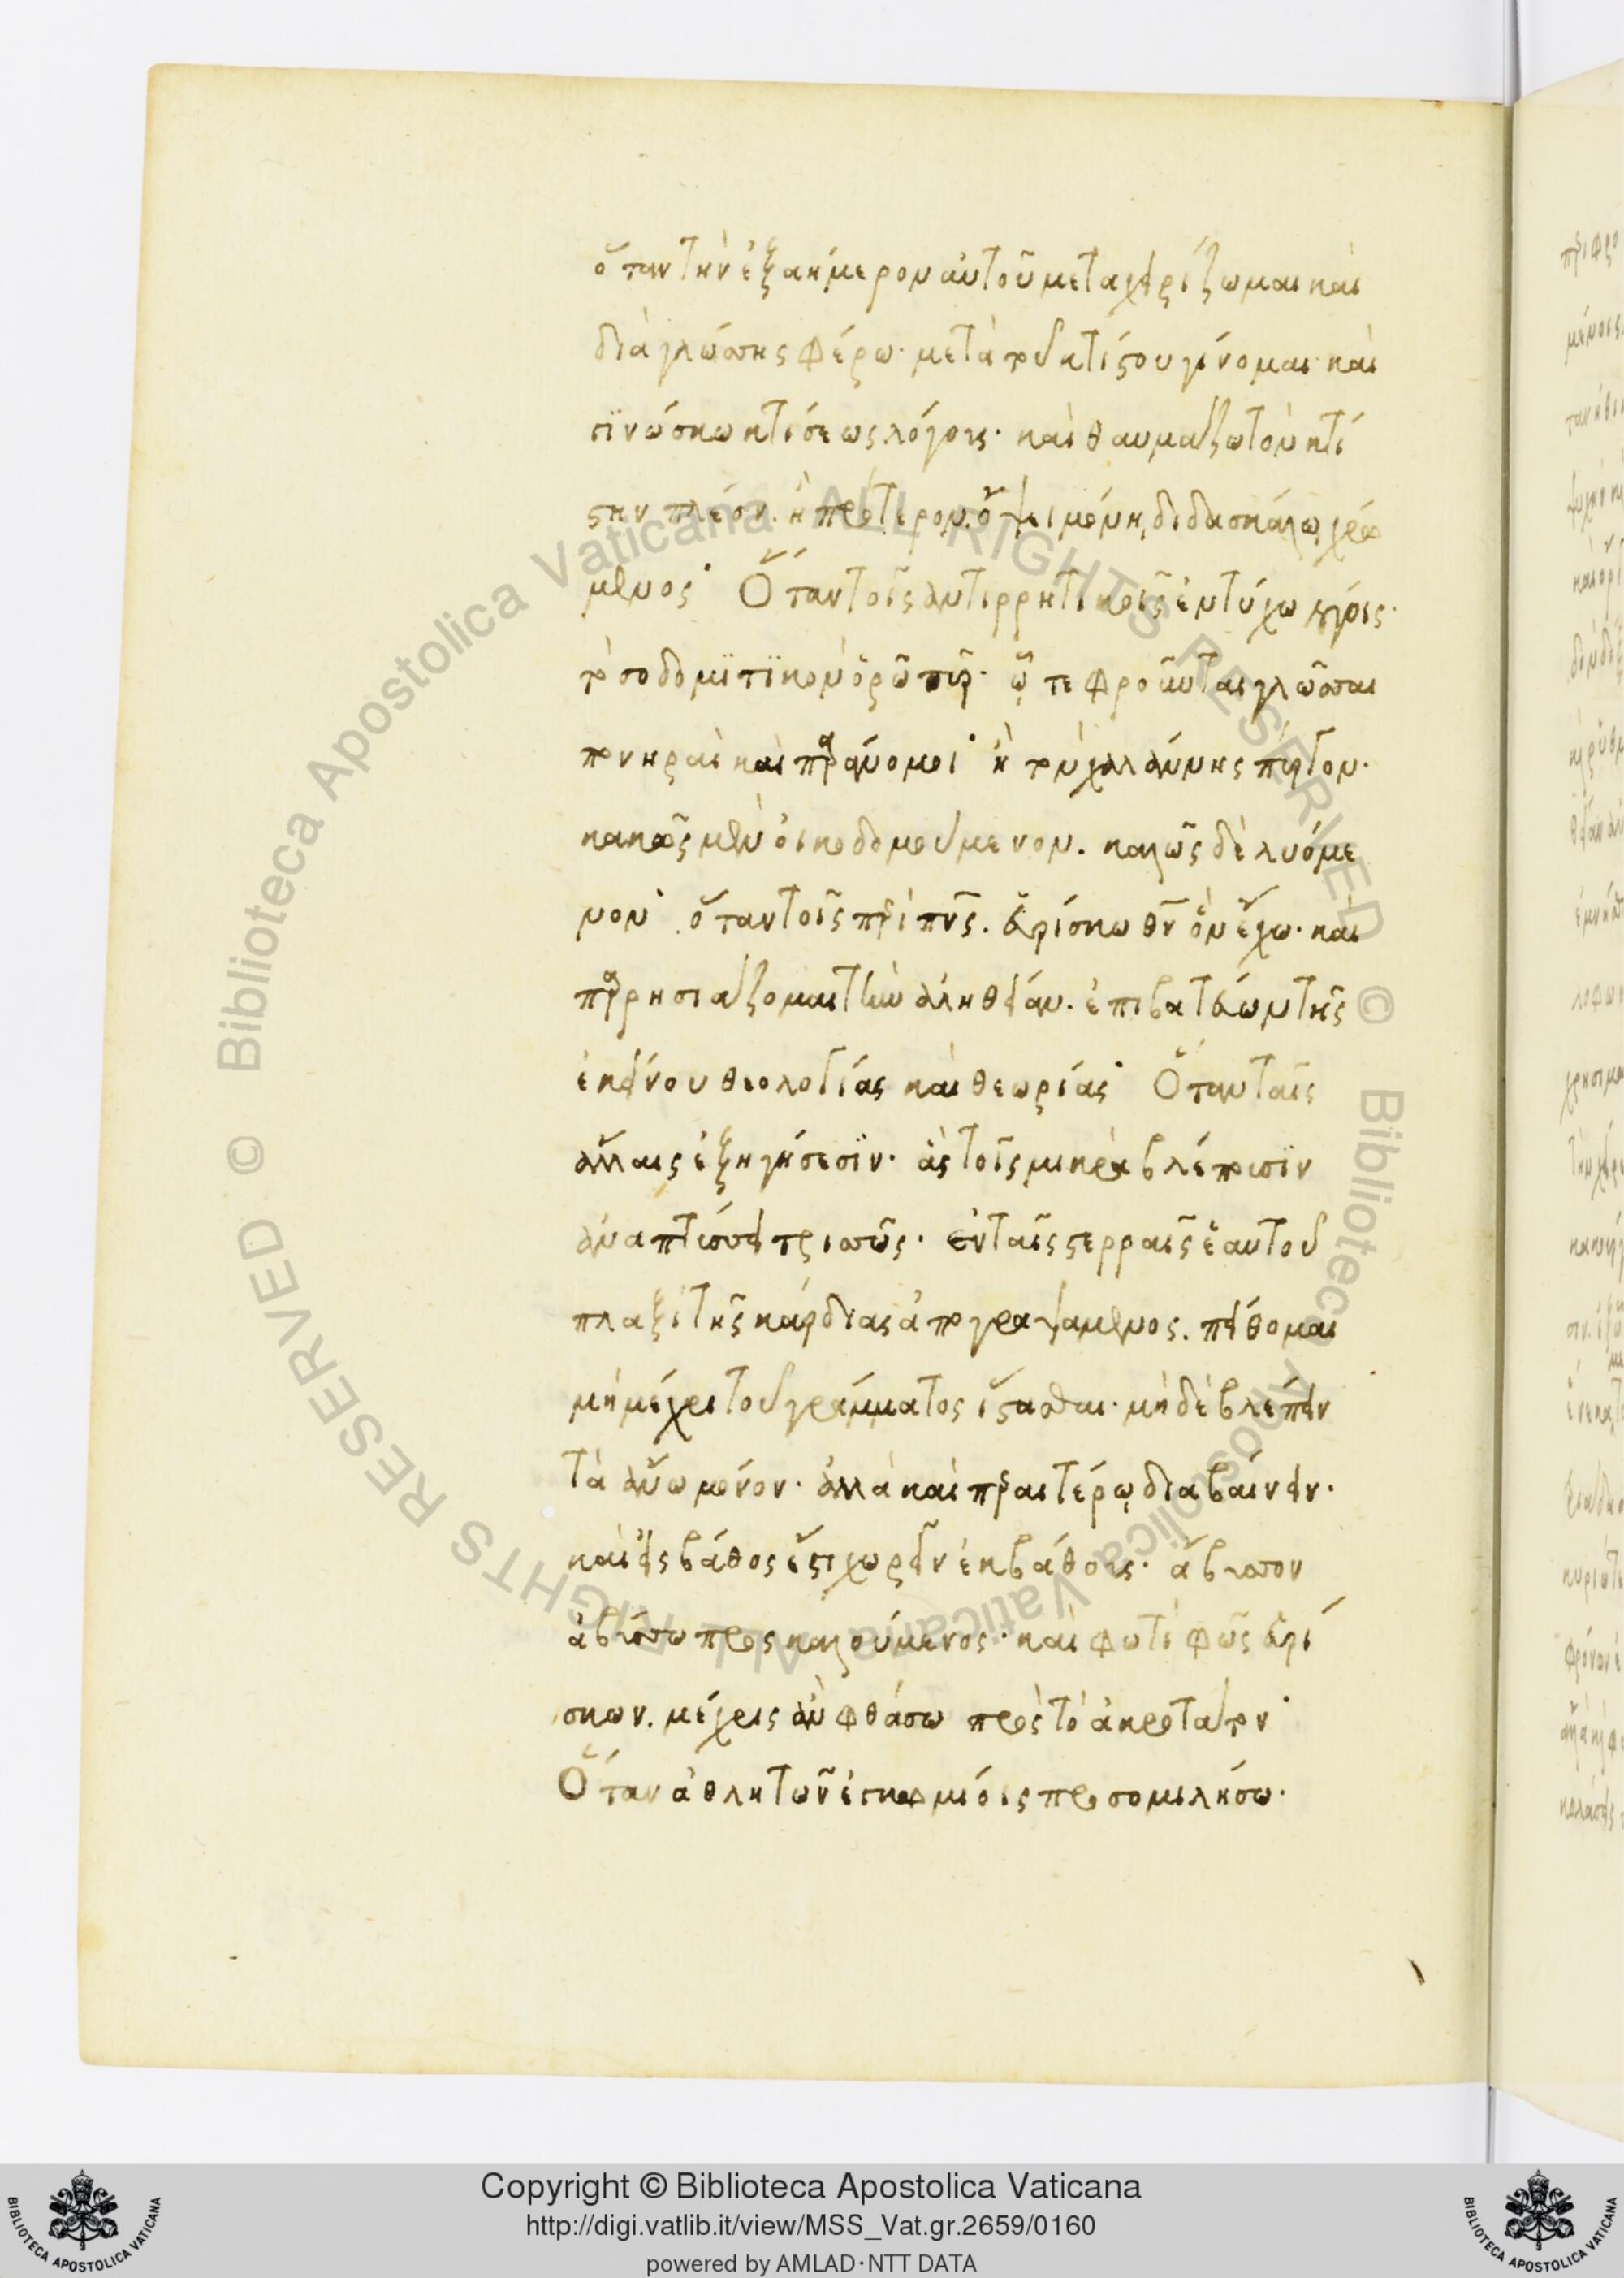 ὅταν τὴν ἐξαήμερον αὐτοῦ μεταχειρίζωμαι καὶ
διὰ γλώσσης φέρω· μετὰ τοῦ κτίστου γίνομαι καὶ
γϊνώσκω κτίσεως λόγους· καὶ θαυμάζω τὸν κτί
στην πλέον. ἢ πρότερον. ὄψει μόνη διδασκάλω χρώ
μενος· Ὅταν τοῖς ἀντιρρητικοῖς ἐντύχω λόγοις·
τὸ σοδομϊτϊκὸν ὁρῶ πῦρ· ὧ τεφροῦνται γλῶσσαι
πονηραὶ καὶ παράνομοι· ἢ τὸν χαλάννης πύργον·
κακῶς μὲν οἰκοδομούμενον. καλῶς δὲ λυόμε
νον· ὅταν τοῖς περὶ πνς. εὑρίσκω θν ὃν ἔχω· καὶ
παρρησιάζομαι τὴν ἀλήθειαν. ἐπιβατεύων τῆς
ἐκείνου θεολογίας καὶ θεωρίας· Ὅταν ταῖς
ἄλλαις ἐξηγήσεσϊν· ἃς τοῖς μικρὰ βλέπουσϊν
ἀναπτύσσει τρισσῶς· ἐν ταῖς στερραῖς ἑαυτοῦ
πλαξὶ τῆς καρδίας ἀπογραψάμενος. πείθομαι
μὴ μέχρι τοῦ γράμματος ἵστασθαι· μὴ δὲ βλέπειν
τὰ ἄνω μόνον· ἀλλὰ καὶ περαιτέρω διαβαίνειν·
καὶ εἰς βάθος ἔτι χωρεῖν ἐκ βάθους· ἄβυσσον
ἀβύσσω προσκαλούμενος· καὶ φωτὶ φῶς εὑρί
σκων. μέχρις ἂν φθάσω πρὸς τὸ ἀκρότατον·
Ὅταν ἀθλητῶν ἐγκωμίοις προσομιλήσω·
Copyright © Biblioteca Apostolica Vaticana
http://digi.vatlib.it/view/MSS_Vat.gr.2659/0160
powered by AMLAD·NTT DATA